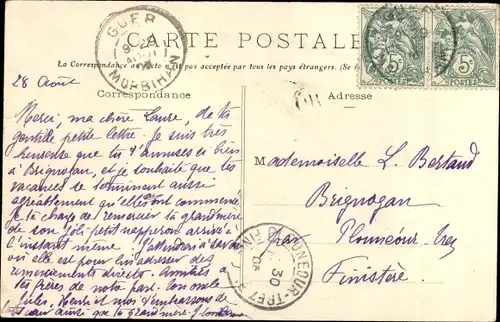 CARTE POSTALE
La Correspondance au recto n'est pas acceptée par tous les pays étrangers. (Se
Correspondance
Adresse
GUER
MORBIHAN
5c
5c
POSTES
28 Août
Merci, ma chère Laure, de ta
gentille petite lettre. Je suis très
heureuse que tu t'amuses si bien
à Brignogan, et je souhaite que tes
vacances se terminent aussi
agréablement qu'elles ont commencé
je te charge de remercier ta grand'mère
de son joli petit napperon arrivé à
l'instant même. J'attendrai
où elle est pour lui adresser des
remerciements directs. Amitiés à
tes frères de notre part. Ton oncle
Jules, Henri et moi t'embrassons de
tout cœur ainsi que ta grand'mère.
M
Mademoiselle L. Bertaud
Brignogan
par Plounéour-Trez
Finistère
PLOUNÉOUR-TREZ
FINISTÈRE
30